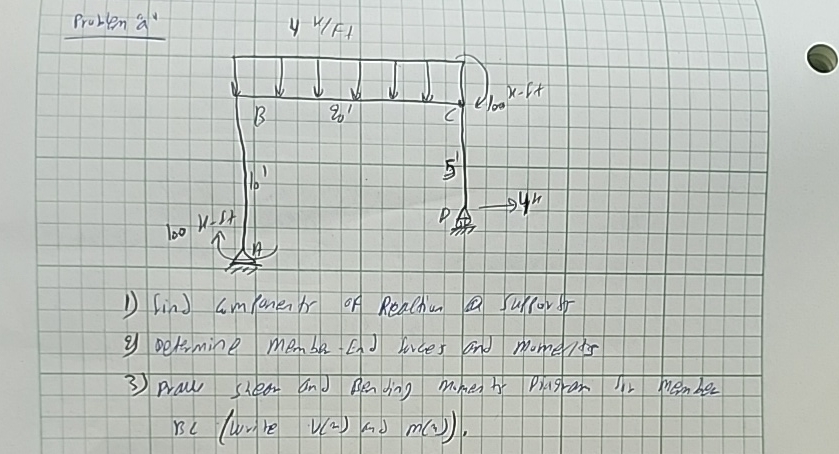 Problem "a"
4 K/Ft
B 20' C 100 K-ft
10' 5'
100 K-ft A D 4K
1) find components of Reaction @ supports
2) Determine member-End forces and moments
3) Draw shear and Bending moments Diagram for member
BC (write V(x) and m(x)).